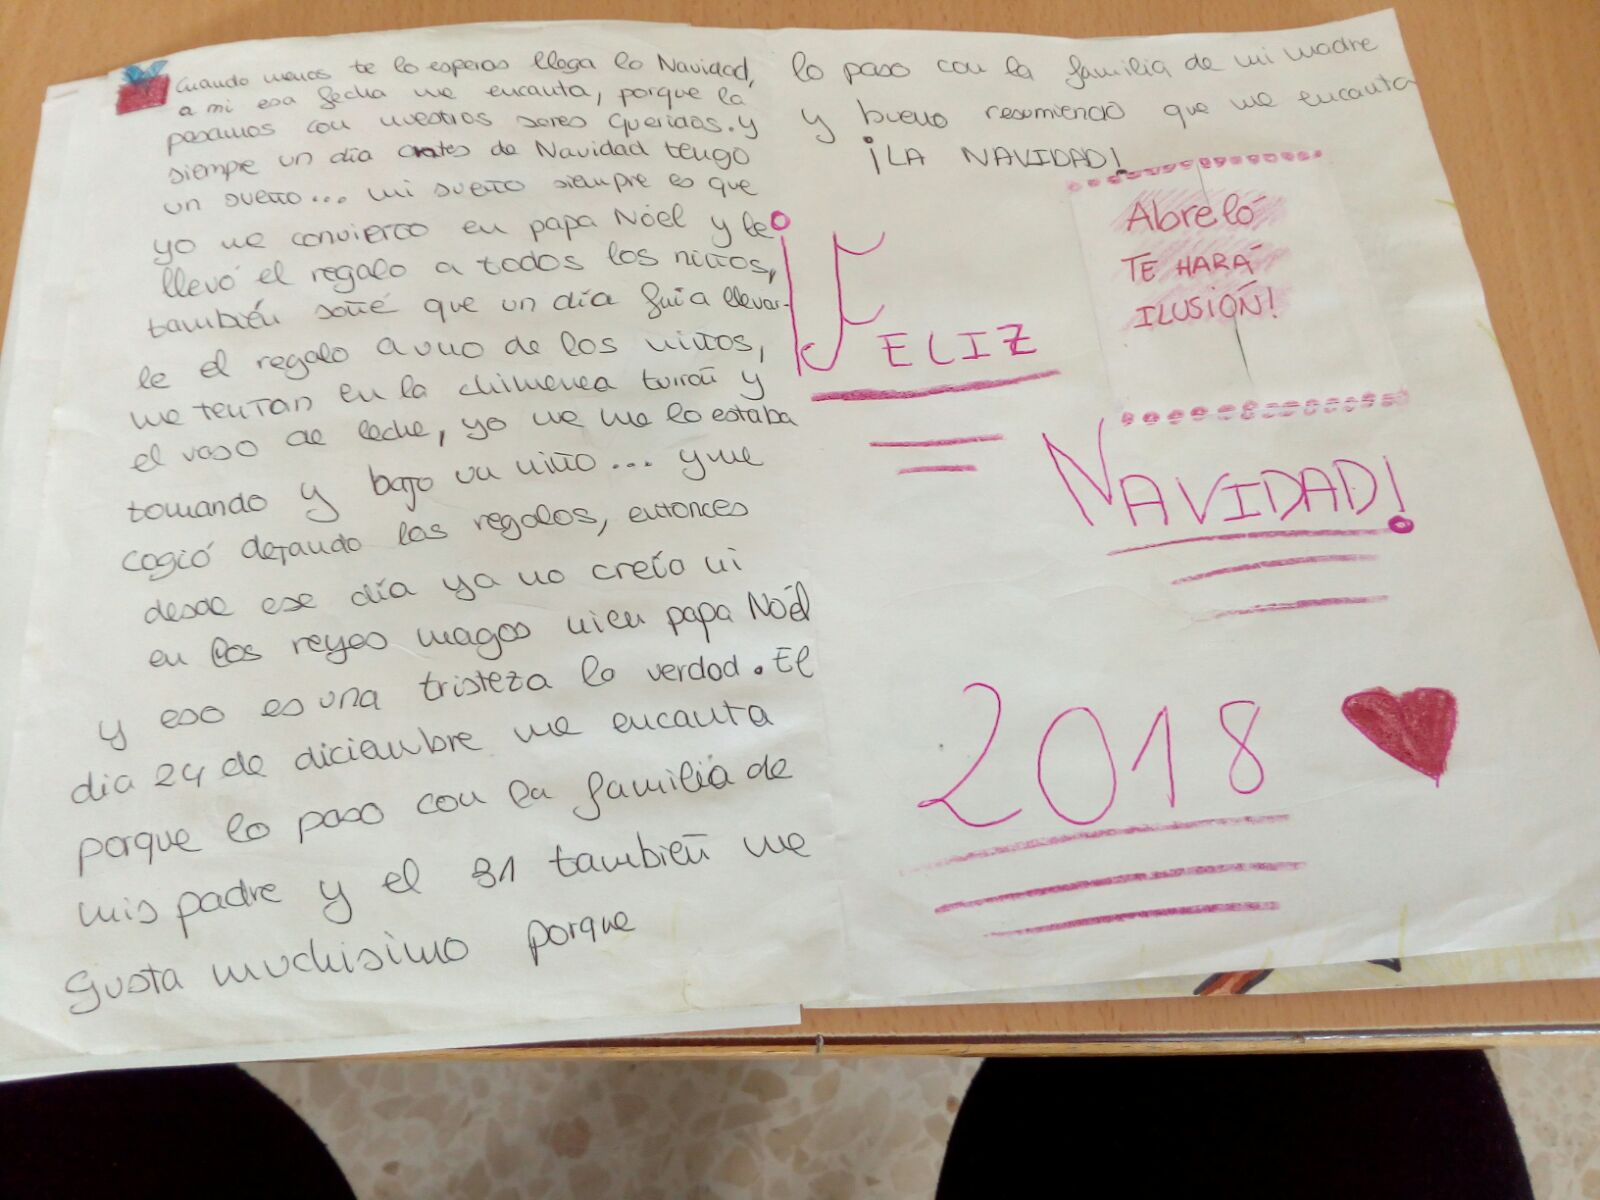 Cuando menos te lo esperas llega la Navidad,
a mi esa fecha me encanta, porque la
pasamos con nuestros seres queridos. y
siempre un día antes de Navidad tengo
un sueño... mi sueño siempre es que
yo me convierto en papa Nóel y le
llevó el regalo a todos los niños,
también soñé que un día fui a llevar-
le el regalo a uno de los niños,
me tenían en la chimenea turrón y
el vaso de leche, yo me me lo estaba
tomando y bajo un niño... y me
cogió dejando los regalos, entonces
desde ese día ya no creía ni
en los reyes magos ni en papa Noél
y eso es una tristeza la verdad. El
dia 24 de diciembre me encanta
porque lo paso con la familia de
mis padre y el 31 también me
gusta muchisimo porque
lo paso con la familia de mi madre
y bueno resumiendo que me encanta
¡LA NAVIDAD!
Abreló
TE HARÁ
ILUSIÓN!
¡FELIZ
NAVIDAD!
2018